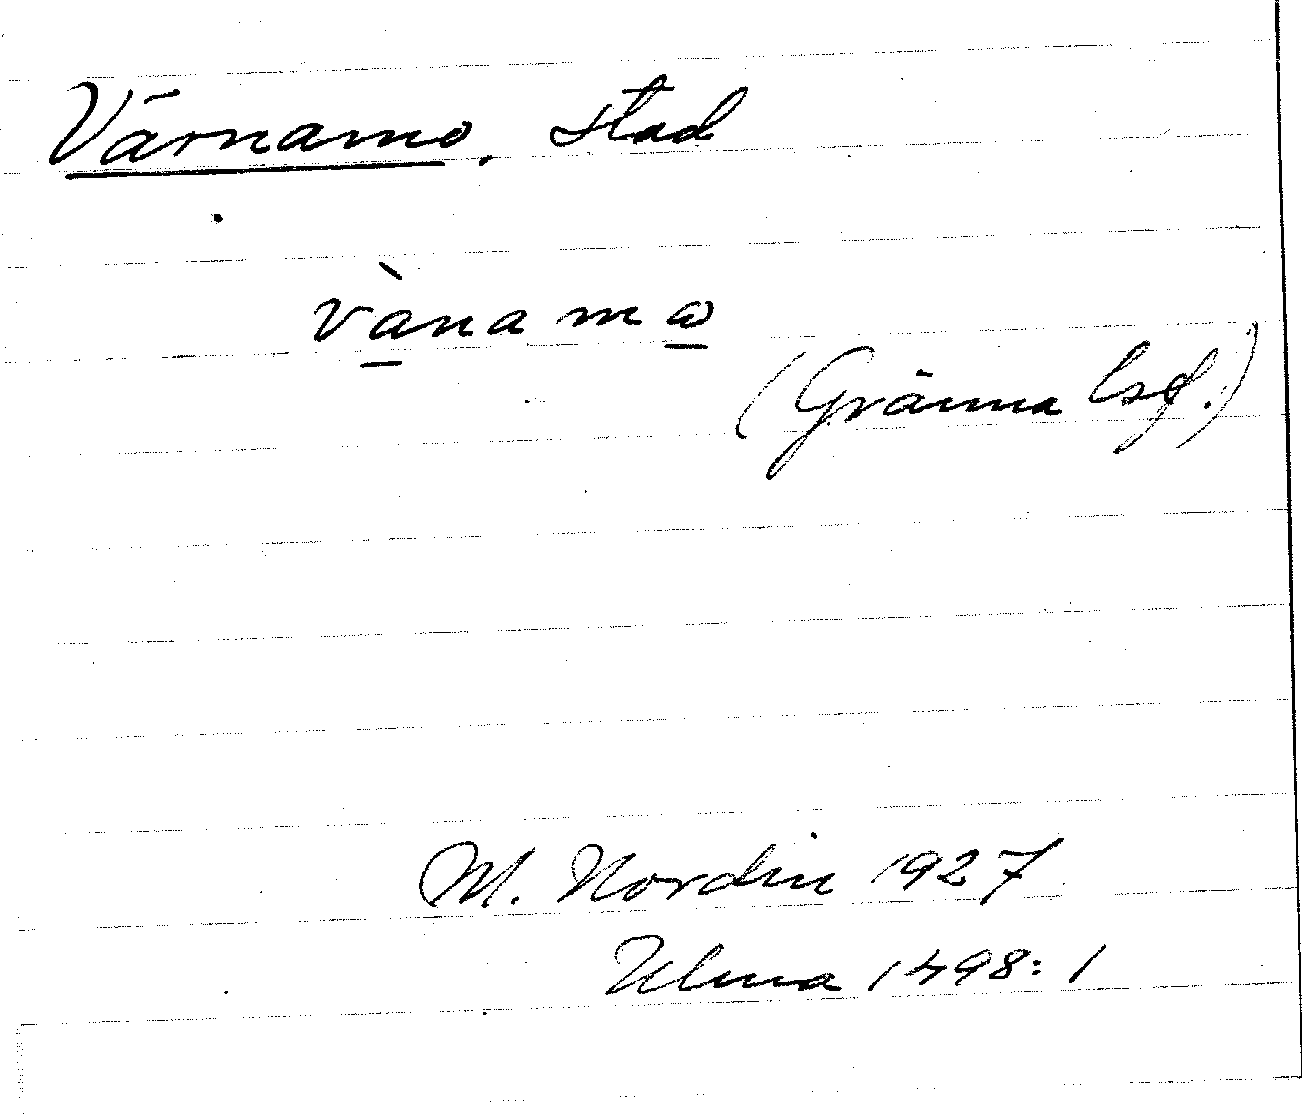 Värnamo, stad
vànamω
(Gränna lsf.)
M. Nordin 1927
Ulma 1498:1